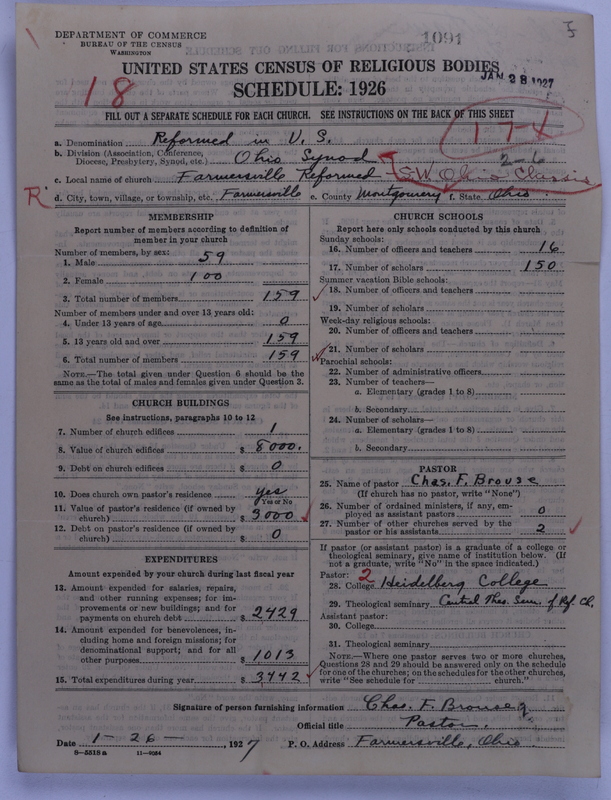 DEPARTMENT OF COMMERCE
BUREAU OF THE CENSUS
WASHINGTON
1091
JAN 28 1927
UNITED STATES CENSUS OF RELIGIOUS BODIES
SCHEDULE: 1926
18
FILL OUT A SEPARATE SCHEDULE FOR EACH CHURCH. SEE INSTRUCTIONS ON THE BACK OF THIS SHEET
a. Denomination Reformed in U. S.
b. Division (Association, Conference, Diocese, Presbytery, Synod, etc.) Ohio Synod
2-6
c. Local name of church Farmersville Reformed
S.W. Ohio Classis
R
d. City, town, village, or township, etc. Farmersville e. County Montgomery f. State Ohio
MEMBERSHIP
Report number of members according to definition of
member in your church
Number of members, by sex:
1. Male 59
2. Female 100
3. Total number of members 159
Number of members under and over 13 years old:
4. Under 13 years of age 0
5. 13 years old and over 159
6. Total number of members 159
NOTE.—The total given under Question 6 should be
the same as the total of males and females given under Question 3.
CHURCH BUILDINGS
See instructions, paragraphs 10 to 12
7. Number of church edifices 1
8. Value of church edifices $ 8000.
9. Debt on church edifices $ 0
10. Does church own pastor's residence yes
Yes or No
11. Value of pastor's residence (if owned by
church) $ 3000
12. Debt on pastor's residence (if owned by
church) $ 0
EXPENDITURES
Amount expended by your church during last fiscal year
13. Amount expended for salaries, repairs,
and other running expenses; for im-
provements or new buildings; and for
payments on church debt $ 2429
14. Amount expended for benevolences, in-
cluding home and foreign missions; for
denominational support; and for all
other purposes $ 1013
15. Total expenditures during year $ 3442
CHURCH SCHOOLS
Report here only schools conducted by this church
Sunday schools:
16. Number of officers and teachers 16
17. Number of scholars 150
Summer vacation Bible schools:
18. Number of officers and teachers
19. Number of scholars
Week-day religious schools:
20. Number of officers and teachers
21. Number of scholars
Parochial schools:
22. Number of administrative officers
23. Number of teachers—
a. Elementary (grades 1 to 8)
b. Secondary
24. Number of scholars—
a. Elementary (grades 1 to 8)
b. Secondary
PASTOR
25. Name of pastor Chas. F. Brouse
(If church has no pastor, write "None")
26. Number of ordained ministers, if any, em-
ployed as assistant pastors 0
27. Number of other churches served by the
pastor or his assistants 2
If pastor (or assistant pastor) is a graduate of a college or
theological seminary, give name of institution below. (If
not a graduate, write "No" in the space indicated.)
Pastor: 2
28. College Heidelberg College
29. Theological seminary Central Theo. Sem. of Ref. Ch.
Assistant pastor:
30. College
31. Theological seminary
NOTE.—Where one pastor serves two or more churches,
Questions 28 and 29 should be answered only on the schedule
for one of the churches; on the schedules for the other churches,
write "See schedule for church."
Signature of person furnishing information Chas. F. Brouse
Official title Pastor.
Date 1-26-, 1927 P. O. Address Farmersville, Ohio
8-5518 a 11-9024